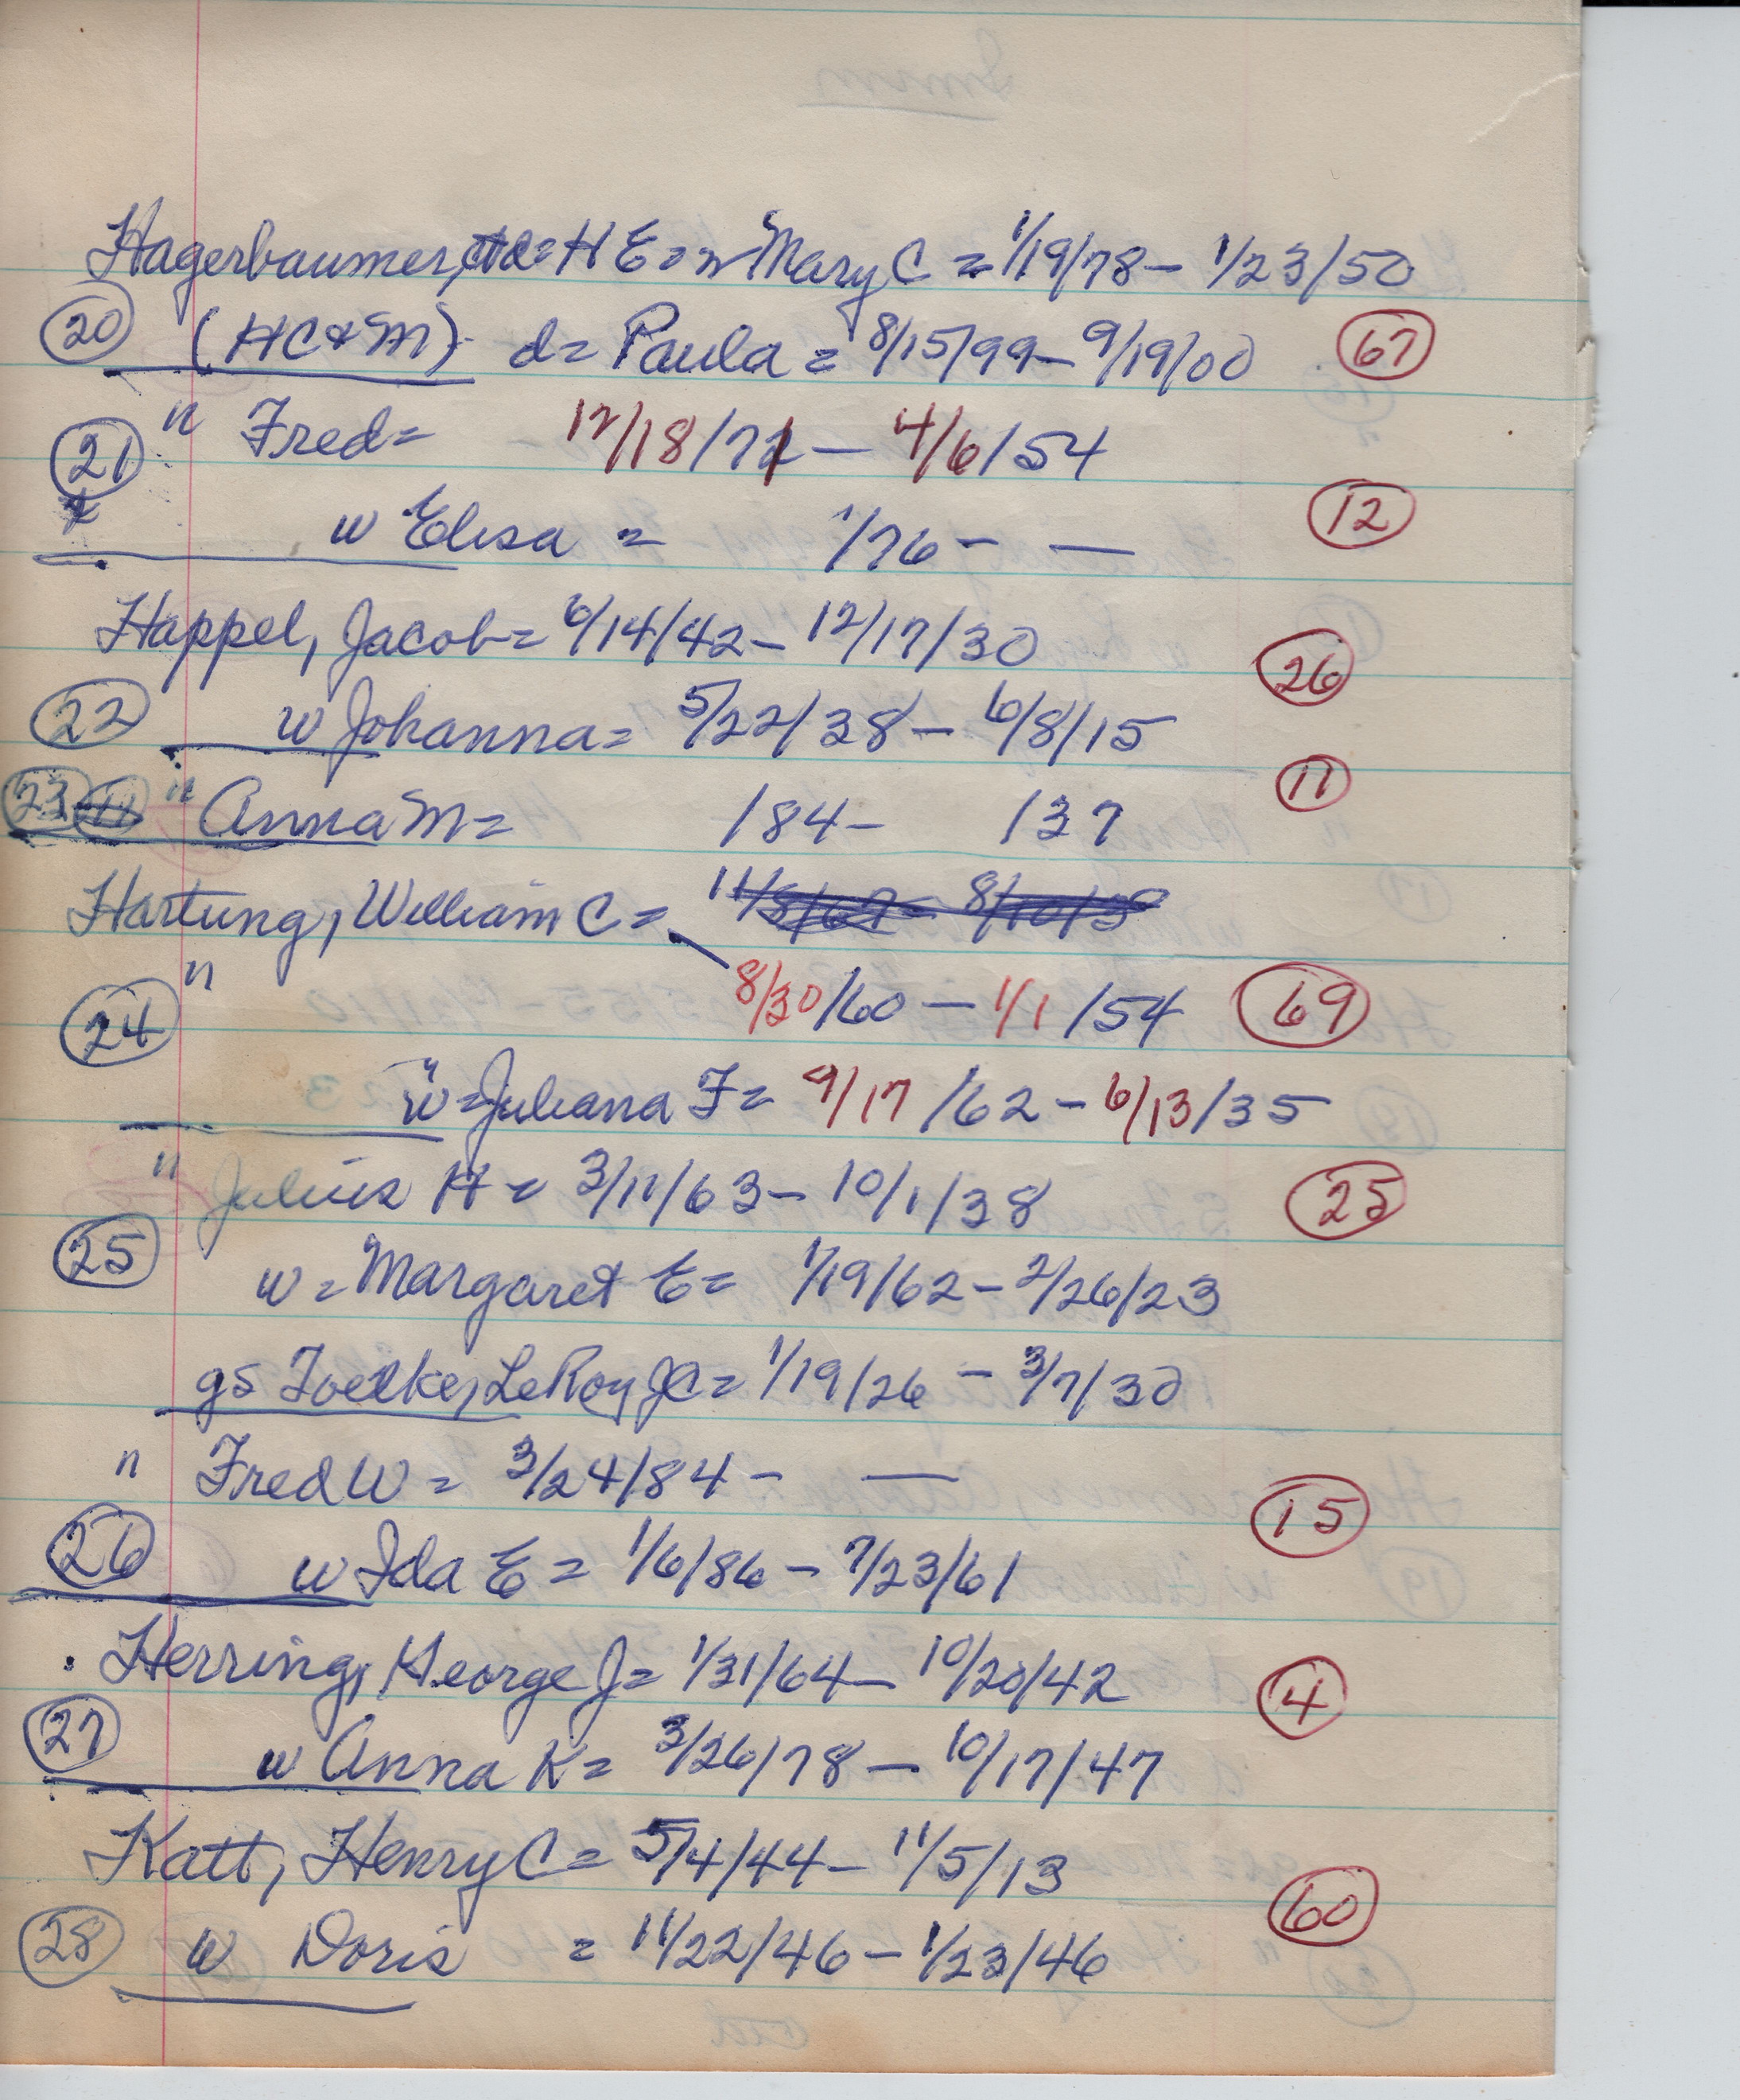 Hagerbaumer, H E = w Mary C = 1/19/78 - 1/23/50
20 (HC & M) d = Paula = 8/15/99 - 9/19/00 67
21 " Fred = 12/18/71 - 4/6/54
w Elisa = 1/76 - — 12
Happel, Jacob = 6/14/42 - 12/17/30 26
22 w Johanna = 5/22/38 - 6/8/15
23 " Anna M = /84 - /37 11
Hartung, William C = 11/8/67 - 8/10/5
24 " 8/30/60 - 1/1/54 69
w = Juliana F = 9/17/62 - 6/13/35
" Julius H = 3/11/63 - 10/1/38 25
25 w = Margaret E = 1/19/62 - 2/26/23
gs Toelke, LeRoy JC = 1/19/26 - 3/7/30
" Fred W = 3/24/84 - — 15
26 w Ida E = 1/6/86 - 7/23/61
Herring, George J = 1/31/64 - 10/20/42 4
27 w Anna K = 3/26/78 - 10/17/47
Katt, Henry C = 5/4/44 - 11/5/13 60
28 w Doris = 11/22/46 - 1/23/46